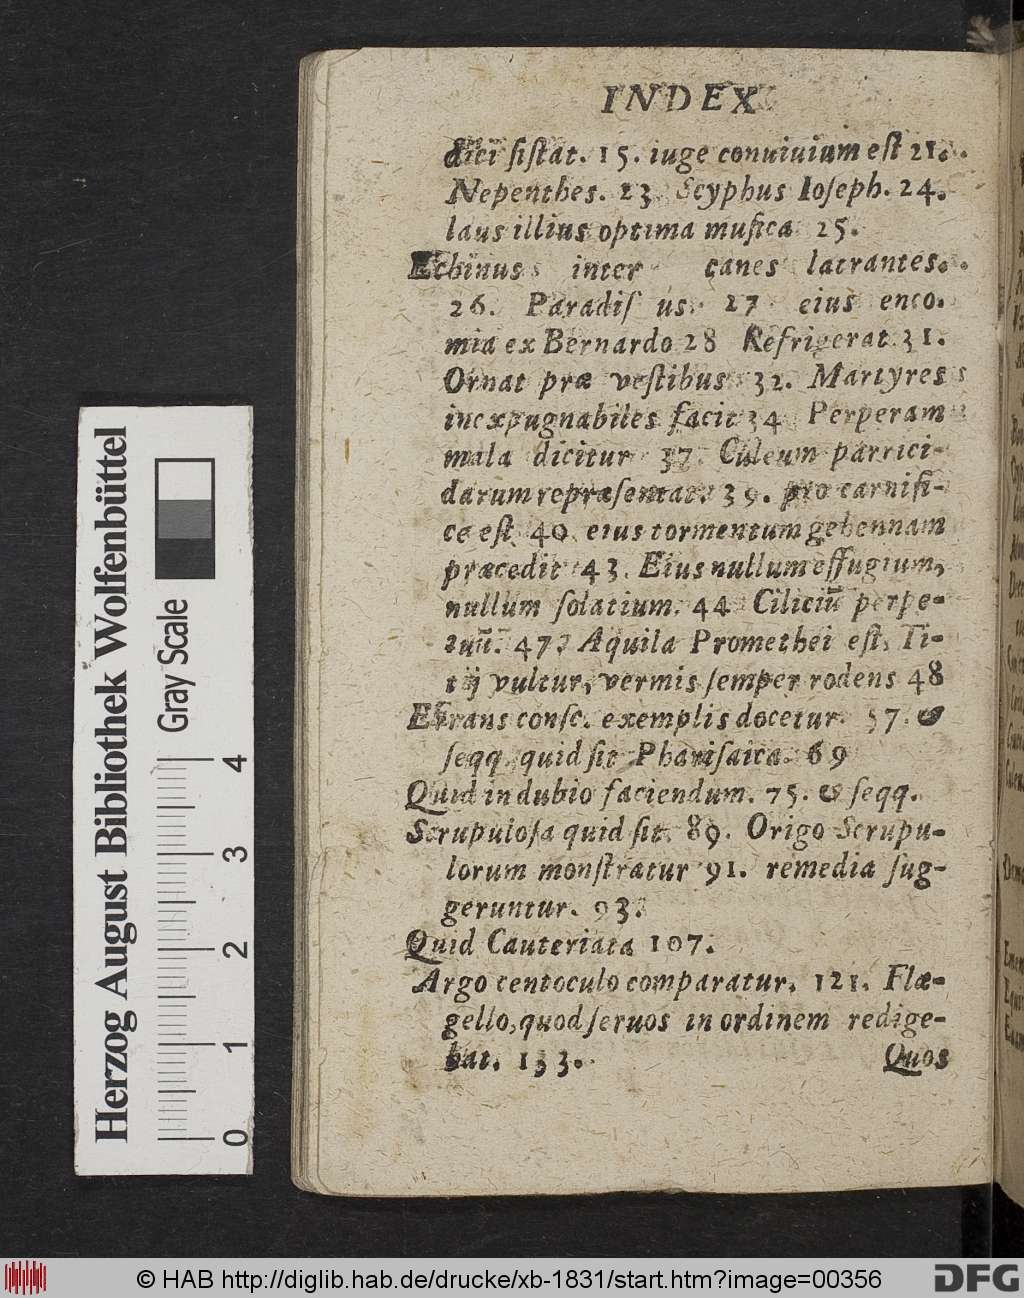 INDEX
dici ſiſtat. 15. iuge conuiuium eſt 21.
Nepenthes. 23 Scyphus Ioſeph. 24.
laus illius optima muſica 25.
Echinus inter canes latrantes.
26. Paradiſ us. 27 eius enco.
mia ex Bernardo 28 Refrigerat 31.
Ornat præ veſtibus 32. Martyres
inexpugnabiles facit 34 Perperam
mala dicitur 37. Culeum parrici-
darum repræſentat. 39. pro carnifi-
ce eſt 40 eius tormentum gehennam
præcedit 43. Eius nullum effugium,
nullum ſolatium. 44 Ciliciū perpe-
tuū. 47. Aquila Promethei eſt, Ti-
tij vultur, vermis ſemper rodens 48
Errans conſc. exemplis docetur. 57. &
ſeqq. quid ſit Phariſaica. 69
Quid in dubio faciendum. 75. & ſeqq.
Scrupuloſa quid ſit. 89. Origo Scrupu-
lorum monſtratur 91. remedia ſug-
geruntur. 93.
Quid Cauteriata 107.
Argo centoculo comparatur. 121. Flæ-
gello, quod ſeruos in ordinem redige-
bat. 133.
Quos
Herzog August Bibliothek Wolfenbüttel
Gray Scale
0 1 2 3 4
© HAB http://diglib.hab.de/drucke/xb-1831/start.htm?image=00356
DFG